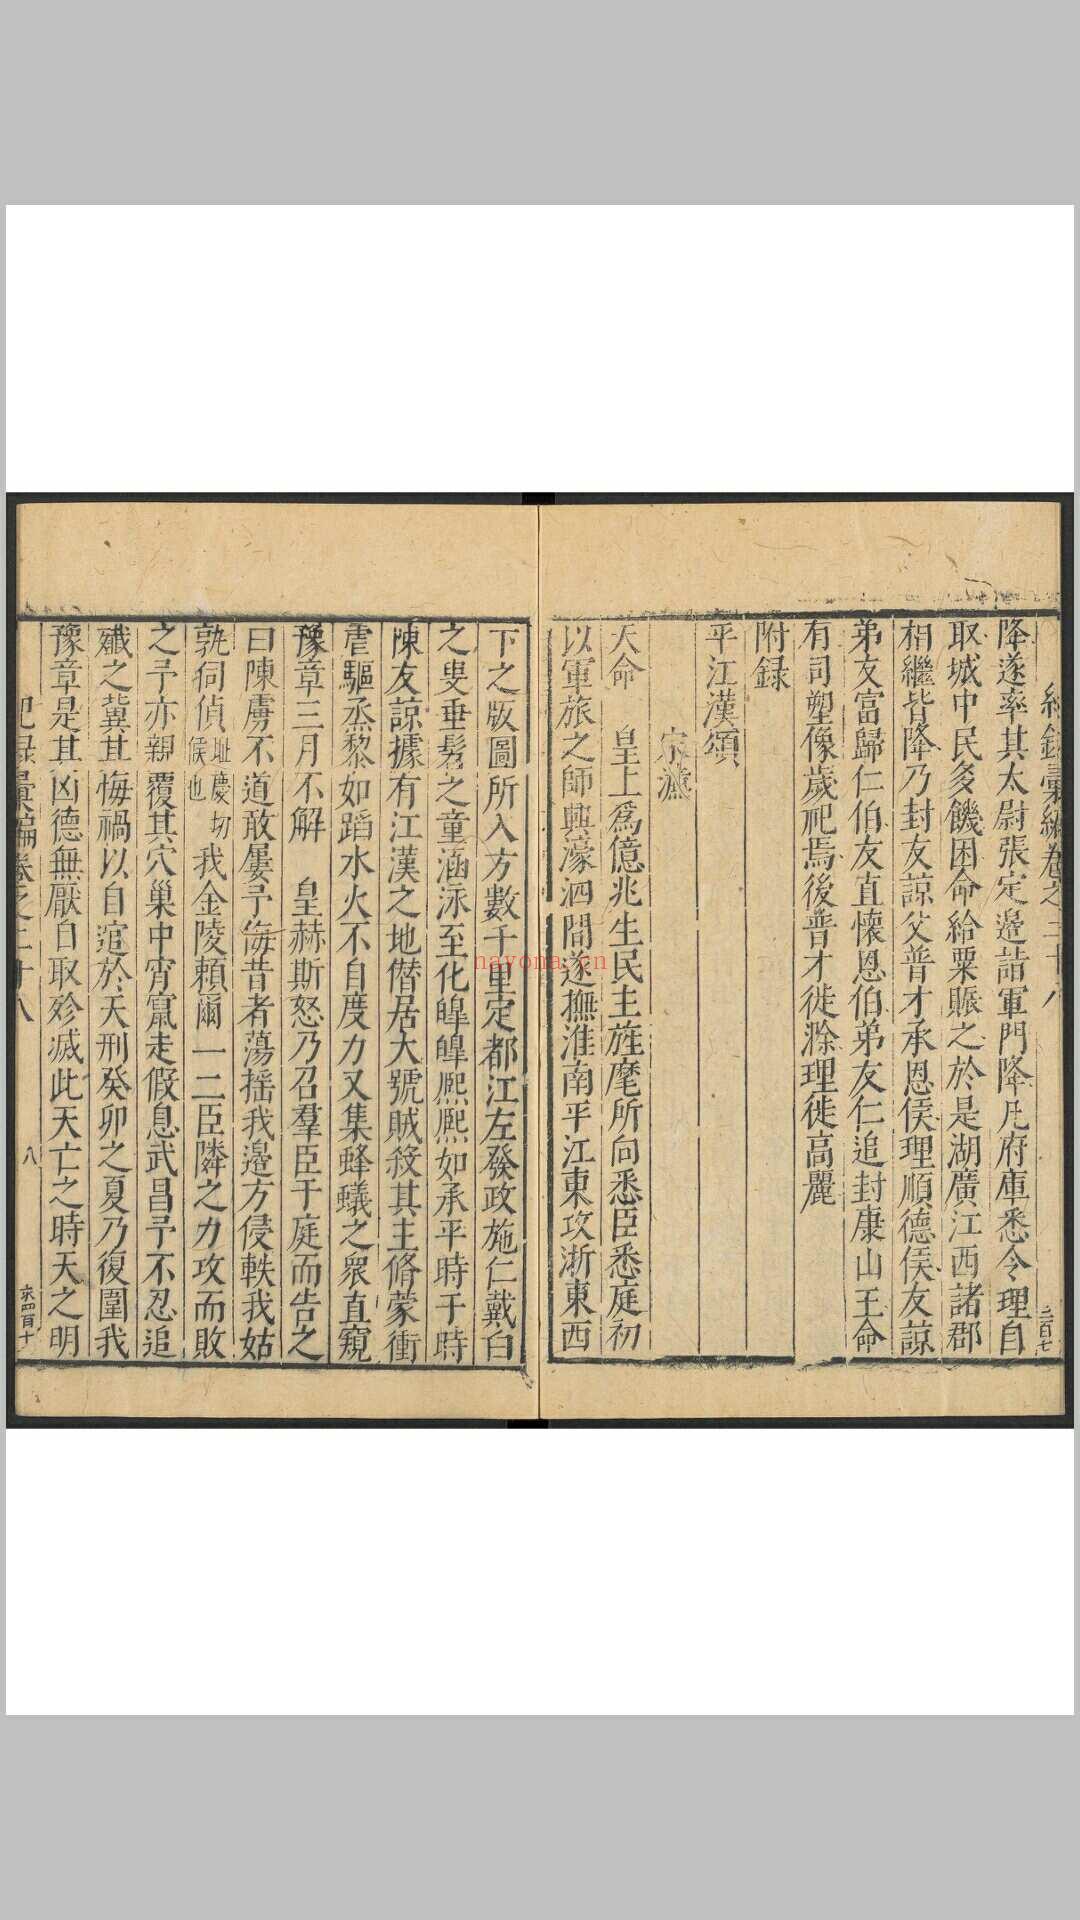 紀錄彙編卷之二十八
降遂率其太尉張定邉詣軍門降凡府庫悉令理自
取城中民多饑困命給粟賑之於是湖廣江西諸郡
相繼皆降乃封友諒父普才承恩侯理順德侯友諒
弟友富歸仁伯友直懷恩伯弟友仁追封康山王命
有司塑像歲祀焉後普才徙滁理徙高麗
附録
平江漢頌
宋濂
天命　皇上爲億兆生民主旌麾所向悉臣悉庭初
以軍旅之師興濠泗間遂撫淮南平江東攻浙東西
下之版圖所入方數千里定都江左發政施仁戴白
之叟垂髫之童涵泳至化皥皥熙熙如承平時于時
陳友諒據有江漢之地僭居大號賊殺其主脩蒙衝
虐驅烝黎如蹈水火不自度力又集蜂蟻之衆直窺
豫章三月不解　皇赫斯怒乃召羣臣于庭而告之
曰陳虜不道敢屢予侮昔者蕩摇我邉方侵軼我姑
孰伺偵 耻慶切 候也 我金陵頼爾一二臣隣之力攻而敗
之予亦親覆其穴巢中宵竄走假息武昌予不忍追
殲之冀其悔禍以自逭於天刑癸卯之夏乃復圍我
豫章是其凶德無厭自取殄滅此天亡之時天之明
紀録彙編卷之二十八
八
nayona.cn